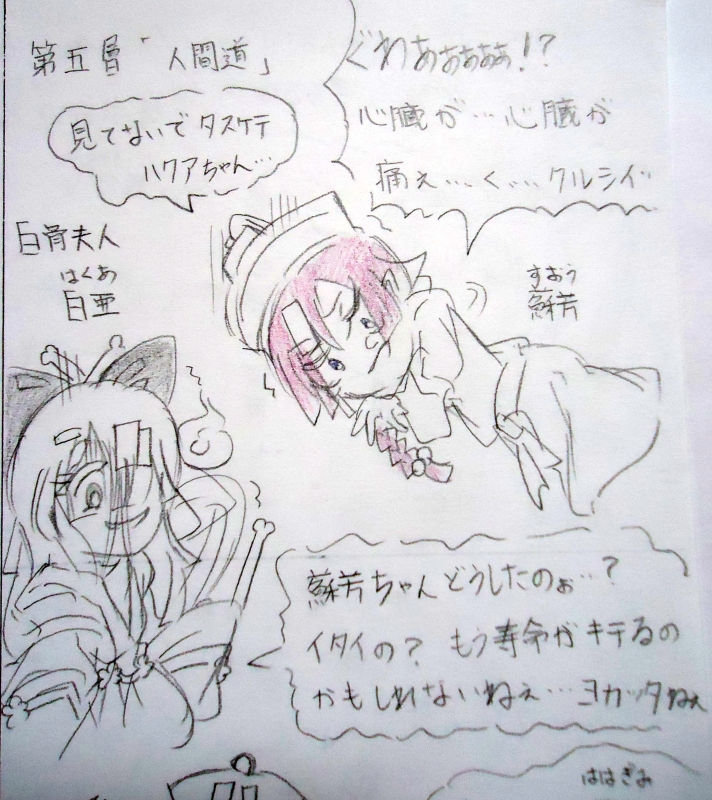 第五層「人間道」
ぐわあぁぁぁぁ!?
心臓が…心臓が
痛ぇ…く…クルシイ
見てないでタスケテ
ハクアちゃん…
白骨夫人
はくあ
白亜
すおう
蘇芳
蘇芳ちゃんどうしたのぉ…?
イタイの?もう寿命がキテるの
かもしれないねぇ…ヨカッタねぇ
ははぎみ